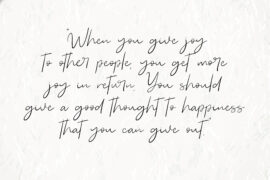 "When you give joy
to other people, you get more
joy in return. You should
give a good thought to happiness
that you can give out."